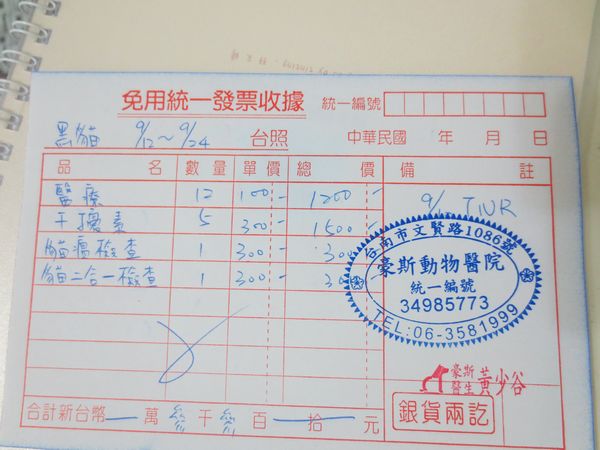 免用統一發票收據 統一編號
黑貓 9/12~9/24 台照 中華民國 年 月 日
品 名 數 量 單 價 總 價 備 註
醫療 12 100- 1200-
干擾素 5 300- 1500-
貓瘟檢查 1 300- 300
貓二合一檢查 1 300- 30
9/ TNR
台南市文賢路1086號
豪斯動物醫院
統一編號
34985773
TEL:06-3581999
豪斯
醫生 黃少谷
合計新台幣 萬 千 百 拾 元
銀貨兩訖